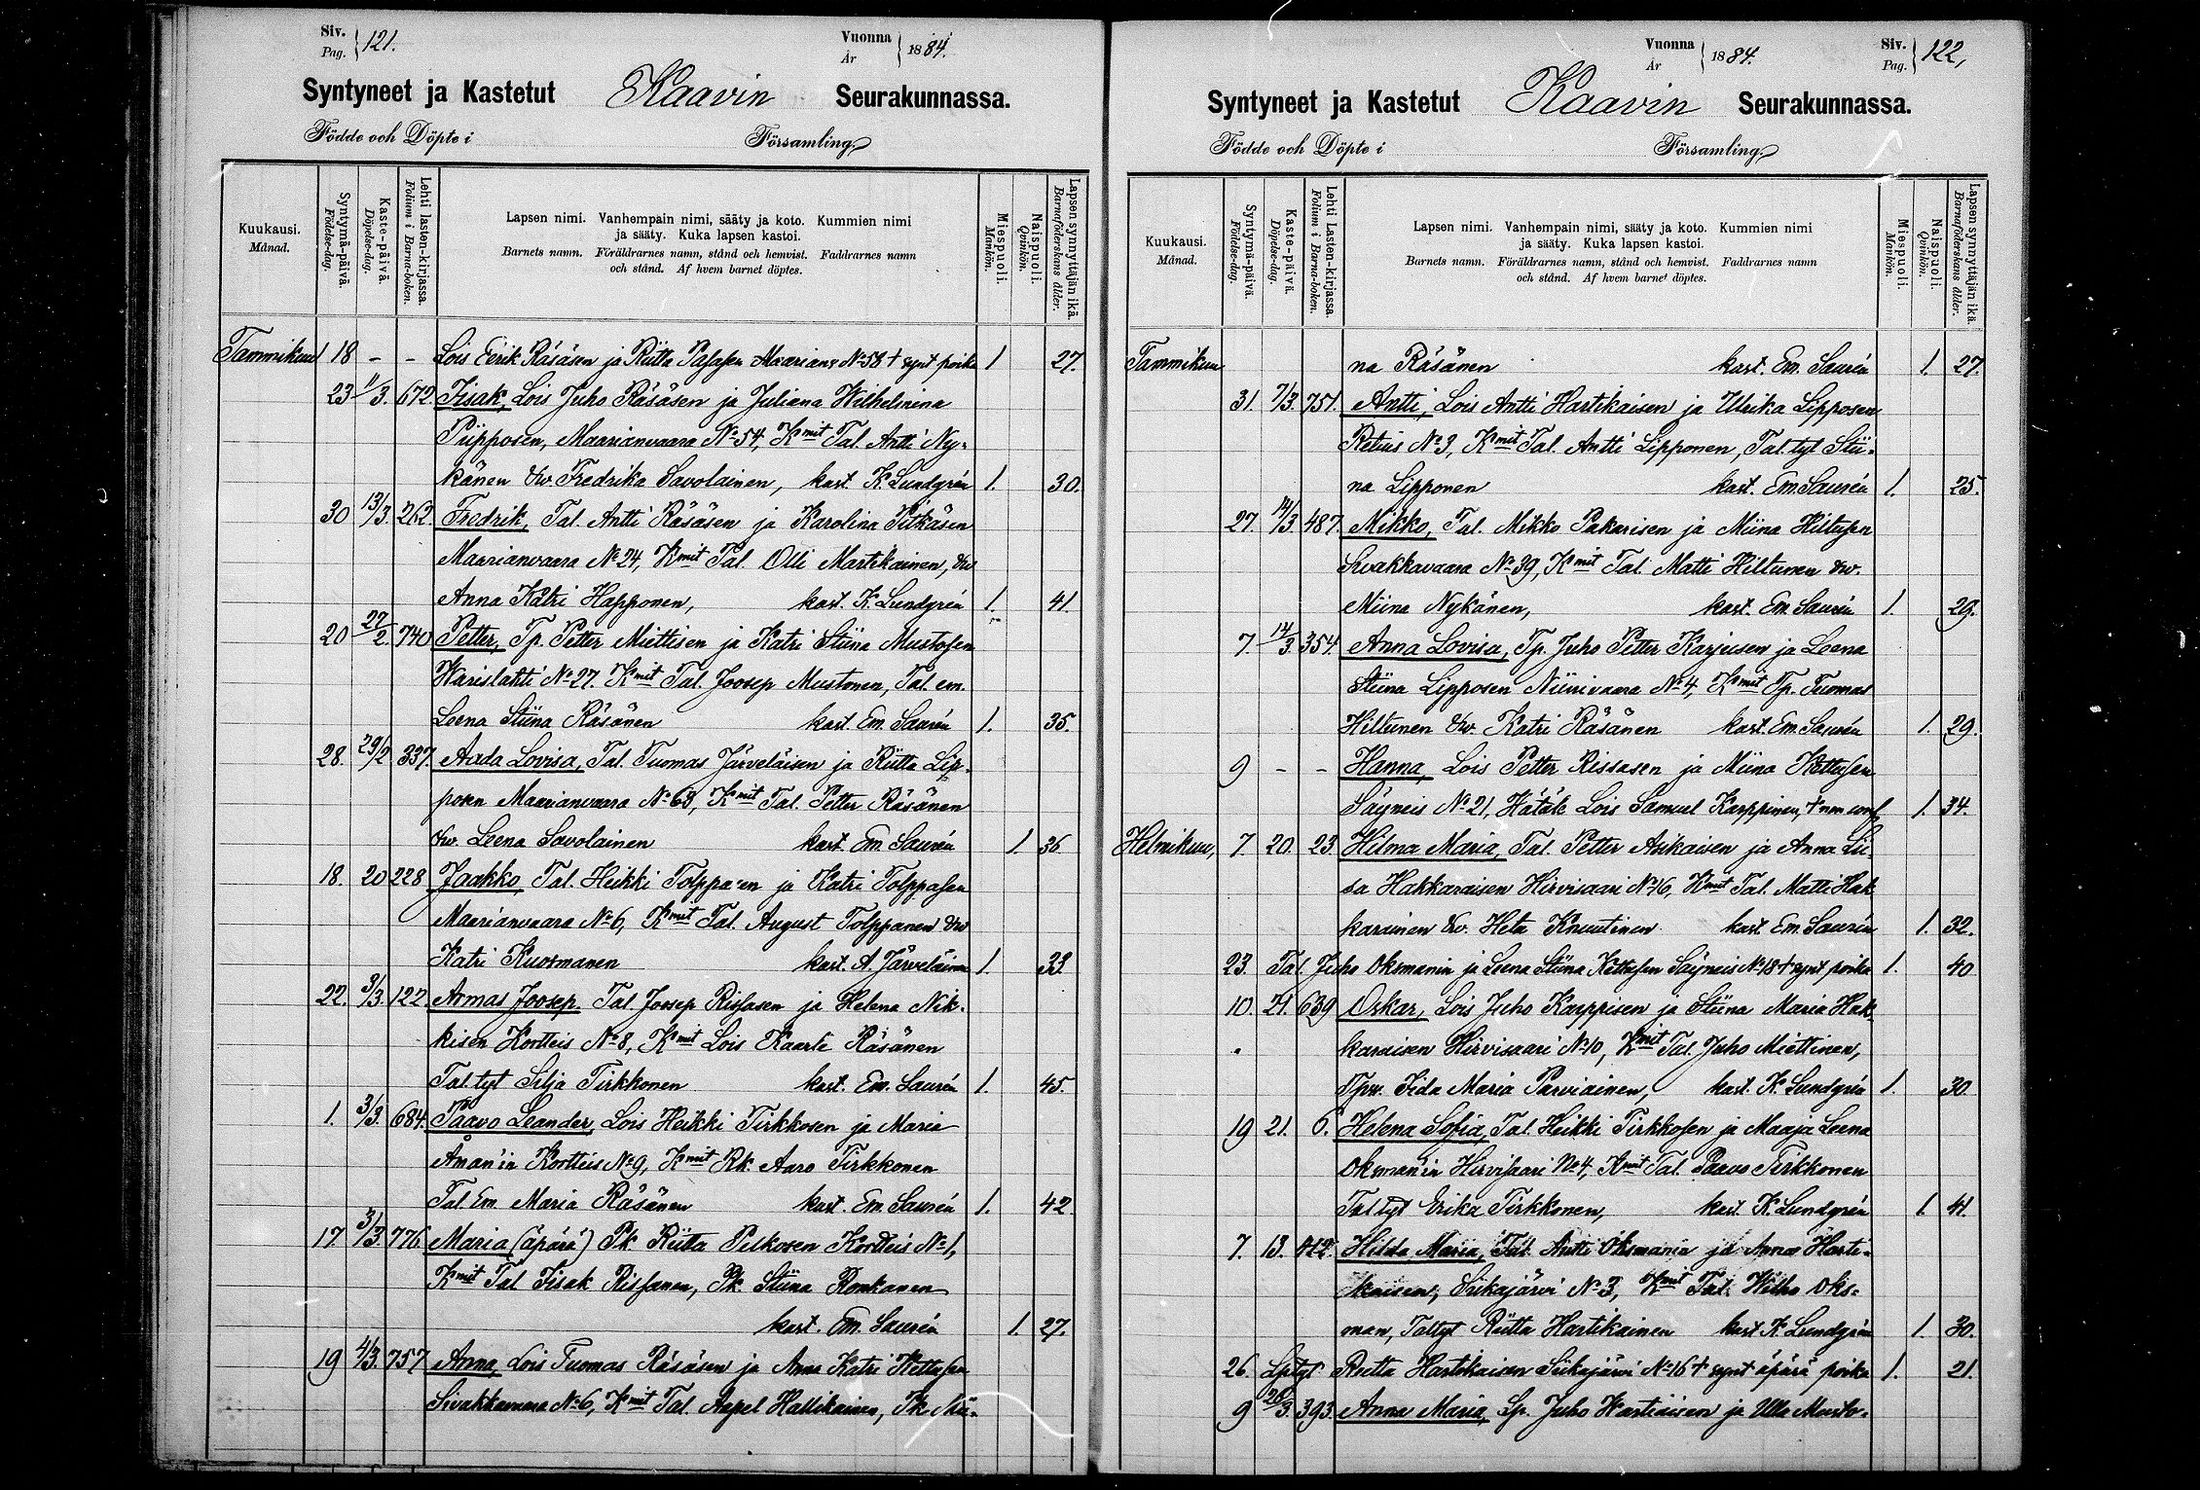 Siv.
Pag. 121.
Vuonna
År 1884.
Syntyneet ja Kastetut Kaavin Seurakunnassa.
Födde och Döpte i Församling
Kuukausi.
Månad.
Syntymä-päivä.
Födelse-dag.
Kaste-päivä.
Döpelse-dag.
Lehti lasten-kirjassa.
Folium i Barna-boken.
Lapsen nimi. Vanhempain nimi, sääty ja koto. Kummien nimi
ja sääty. Kuka lapsen kastoi.
Barnets namn. Föräldrarnes namn, stånd och hemvist. Faddrarnes namn
och stånd. Af hvem barnet döptes.
Miespuoli.
Mankön.
Naispuoli.
Qvinkön.
Lapsen synnyttäjän ikä.
Barnaföderskans ålder.
Tammikuu 18 - - Lois Eerik Räsäsen ja Riitta Pasasen Maarianv No 58 + synt poika 1 27.
23 11/3. 672. Iisak, Lois Juho Räsäsen ja Juliana Wilhelmina
Piipposen, Maarianvaara No 54, Kmit Tal. Antti Ny-
känen vw. Fredrika Savolainen, kast. K. Lundgrén 1. 30.
30 13/3. 262. Fredrik, Tal. Antti Räsäsen ja Karolina Pitkäsen
Maarianvaara No 24, Kmit Tal. Olli Martikainen, vw
Anna Katri Happonen, kast. K. Lundgrén 1. 41.
20 27/2. 740 Petter, Tp. Petter Miettisen ja Katri Stiina Mustosen
Warislahti No 27. Kmit Tal. Joosep Mustonen, Tal. em.
Leena Stiina Räsänen kast. Em. Saurén 1. 35.
28. 29/2 337. Aada Lovisa, Tal. Tuomas Järveläisen ja Riitta Lip-
posen Maarianvaara No 63, Kmit Tal. Petter Räsänen
vw. Leena Savolainen kast. Em. Saurén 1. 36
18. 20 228 Jaakko, Tal. Heikki Tolppa'en ja Katri Tolppasen
Maarianvaara No 6, Kmit Tal. August Tolppanen vw
Katri Kuosmanen kast. A. Järveläinen 1. 33.
22. 3/3. 122 Armas Joosep. Tal Joosep Rissasen ja Helena Nik-
kisen Kortteis No 8, Kmit Lois Kaarle Räsänen
Tal. tyt Silja Tirkkonen kast. Em. Saurén 1. 45.
1. 3/3. 684. Paavo Leander, Lois Heikki Tirkkosen ja Maria
Åman'in Kortteis No 9, Kmit Rk. Aaro Tirkkonen
Tal. Em. Maria Räsänen kast. Em Saurén 1. 42
17. 3/3. 776. Maria (äpärä) Pk. Riitta Pelkosen Kortteis No 1,
Kmit Tal Iisak Rissanen, Pk. Stiina Ronkanen
kast. Em. Saurén 1. 27.
19 4/3. 757 Anna, Lois Tuomas Räsäsen ja Anna Katri Kettusen
Sivakkavaara No 6, Kmit Tal. Aapel Hallikainen, Pk Mii-
Vuonna
År 1884.
Siv.
Pag. 122,
Syntyneet ja Kastetut Kaavin Seurakunnassa.
Födde och Döpte i Församling
Kuukausi.
Månad.
Syntymä-päivä.
Födelse-dag.
Kaste-päivä.
Döpelse-dag.
Lehti Lasten-kirjassa.
Folium i Barna-boken.
Lapsen nimi. Vanhempain nimi, sääty ja koto. Kummien nimi
ja sääty. Kuka lapsen kastoi.
Barnets namn. Föräldrarnes namn, stånd och hemvist. Faddrarnes namn
och stånd. Af hvem barnet döptes.
Miespuoli.
Mankön.
Naispuoli.
Qvinkön.
Lapsen synnyttäjän ikä.
Barnaföderskans ålder.
Tammikuu na Räsänen kast. Em. Saurén 1. 27.
31. 7/3. 751. Antti, Lois Antti Hartikaisen ja Ulrika Lipposen
Retius No 3, Kmit Tal. Antti Lipponen, Tal. tyt Stii-
na Lipponen kast. Em Saurén 1. 25.
27. 14/3 487. Mikko, Tal. Mikko Pakarisen ja Miina Hiltusen
Sivakkavaara No 39, Kmit Tal. Matti Hiltunen vw.
Miina Nykänen, kast. Em. Saurén 1. 29.
7. 14/3. 354 Anna Lovisa, Tp. Juho Petter Karjeisen ja Leena
Stiina Lipposen Niinivaara No 4, Kmit Tp. Tuomas
Hiltunen vw. Katri Räsänen kast. Em. Saurén 1. 29.
9 - - Hanna, Lois Petter Rissasen ja Miina Kettusen
Säyneis No 21, Hätäk Lois Samuel Karppinen, + 1. 34.
Helmikuu, 7. 20. 23. Hilma Maria, Tal. Petter Asikaisen ja Anna Lii-
sa Hakkaraisen Hirvisaari No 16, Kmit Tal. Matti Hak
karainen vw. Heta Knuutinen kast. Em. Saurén 1. 32.
23. Tal Juho Oksmanin ja Leena Stiina Kettusen Säyneis No 18 + synt poika 1. 40
10. 21. 639 Oskar, Lois Juho Karppisen ja Stiina Maria Hak-
karaisen Hirvisaari No 10, Kmit Tal. Juho Miettinen,
Tpvw. Iida Maria Parviainen, kast. K. Lundgrén 1. 30.
19 21. 6. Helena Sofia, Tal. Heikki Tirkkosen ja Maaja Leena
Oksman'in Hirvisaari No 4, Kmit Tal. Paavo Tirkkonen
Tal tyt Erika Tirkkonen, kast. K. Lundgrén 1. 41.
7. 13. 412. Hilda Maria, Tal. Antti Oksmanin ja Anna Harti-
kaisen, Siikajärvi No 3, Kmit Tal. Wilho Oks-
man, Taltyt Riitta Hartikainen kast K. Lundgrén 1. 30.
26. Lptyt Riitta Hartikaisen Siikajärvi No 16 + synt äpärä poika 1. 21.
9 26/3. 393. Anna Maria, Lp. Juho Hartiaisen ja Ulla Musto-